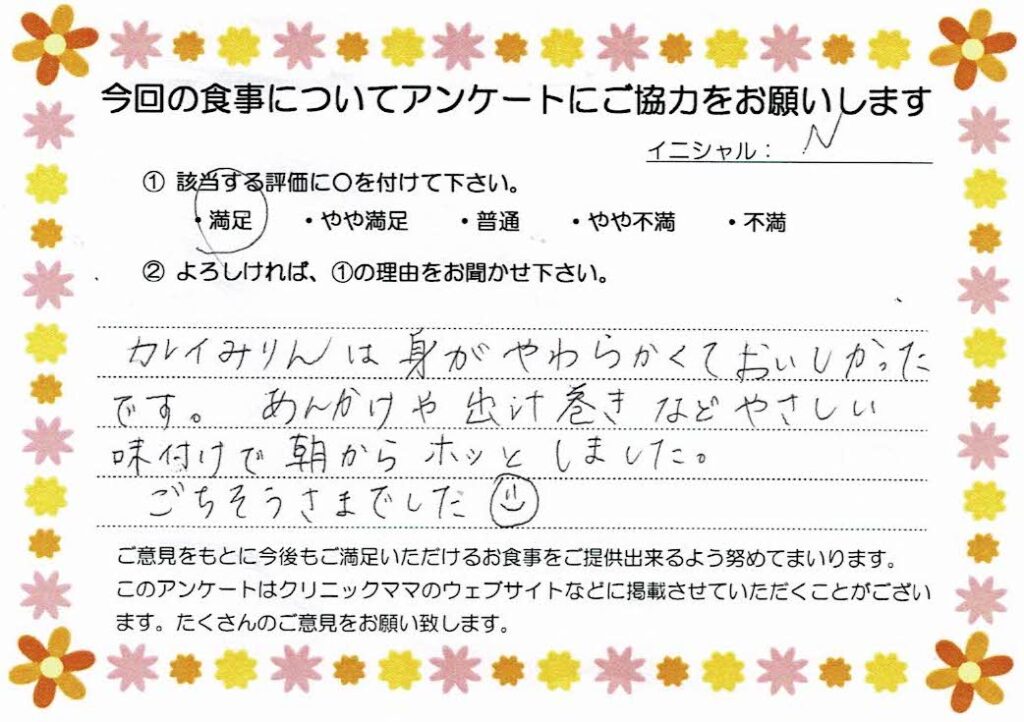 今回の食事についてアンケートにご協力をお願いします
イニシャル： N
① 該当する評価に〇を付けて下さい。
・満足 ・やや満足 ・普通 ・やや不満 ・不満
② よろしければ、①の理由をお聞かせ下さい。
カレイみりんは身がやわらかくておいしかった
です。 あんかけや出汁巻きなどやさしい
味付けで朝からホッとしました。
ごちそうさまでした
ご意見をもとに今後もご満足いただけるお食事をご提供出来るよう努めてまいります。
このアンケートはクリニックママのウェブサイトなどに掲載させていただくことがござい
ます。たくさんのご意見をお願い致します。